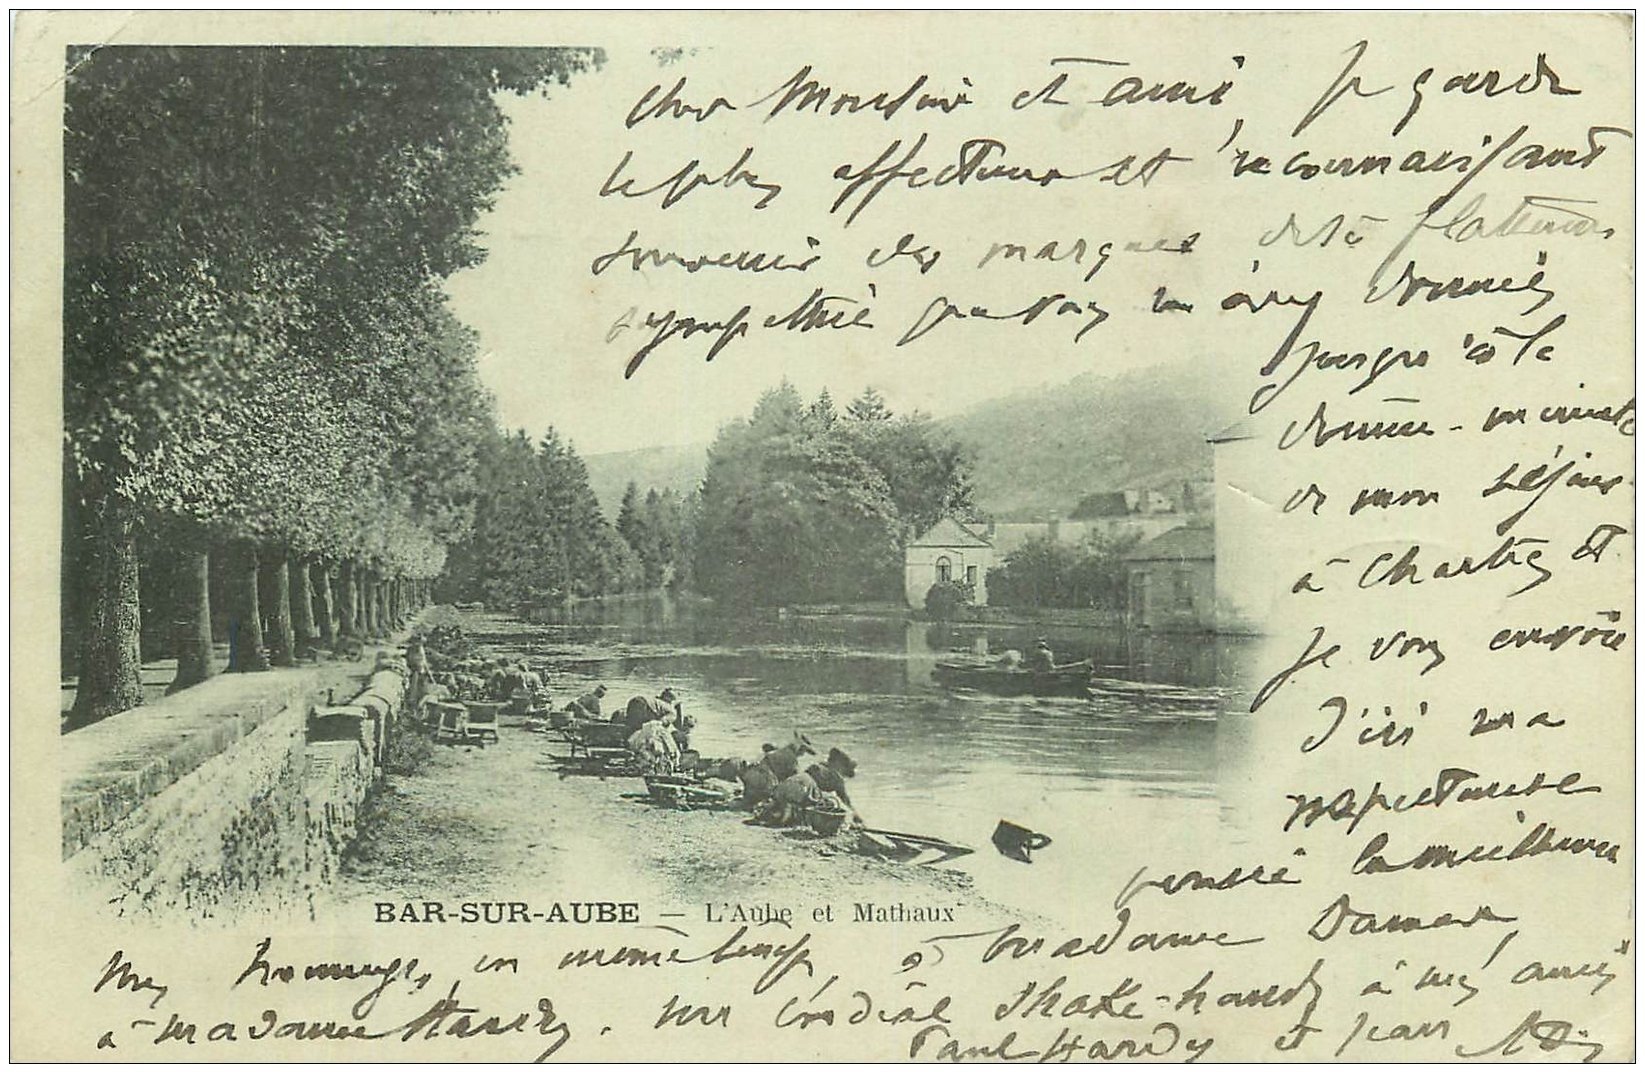 Cher Monsieur et ami, Je garde
le plus affectueux et reconnaissant
souvenir des marques de la flatteuse
sympathie que vous m'avez données
jusqu'à la
dernière minute
de mon séjour
à Chartres et
je vous envoie
d'ici ma
respectueuse
pensée la meilleure
BAR-SUR-AUBE — L'Aube et Mathaux
Mes hommages, en même temps, à Madame
à Madame Hardy. Mon cordial shake-hands à mes amis
Paul Hardy et Jean